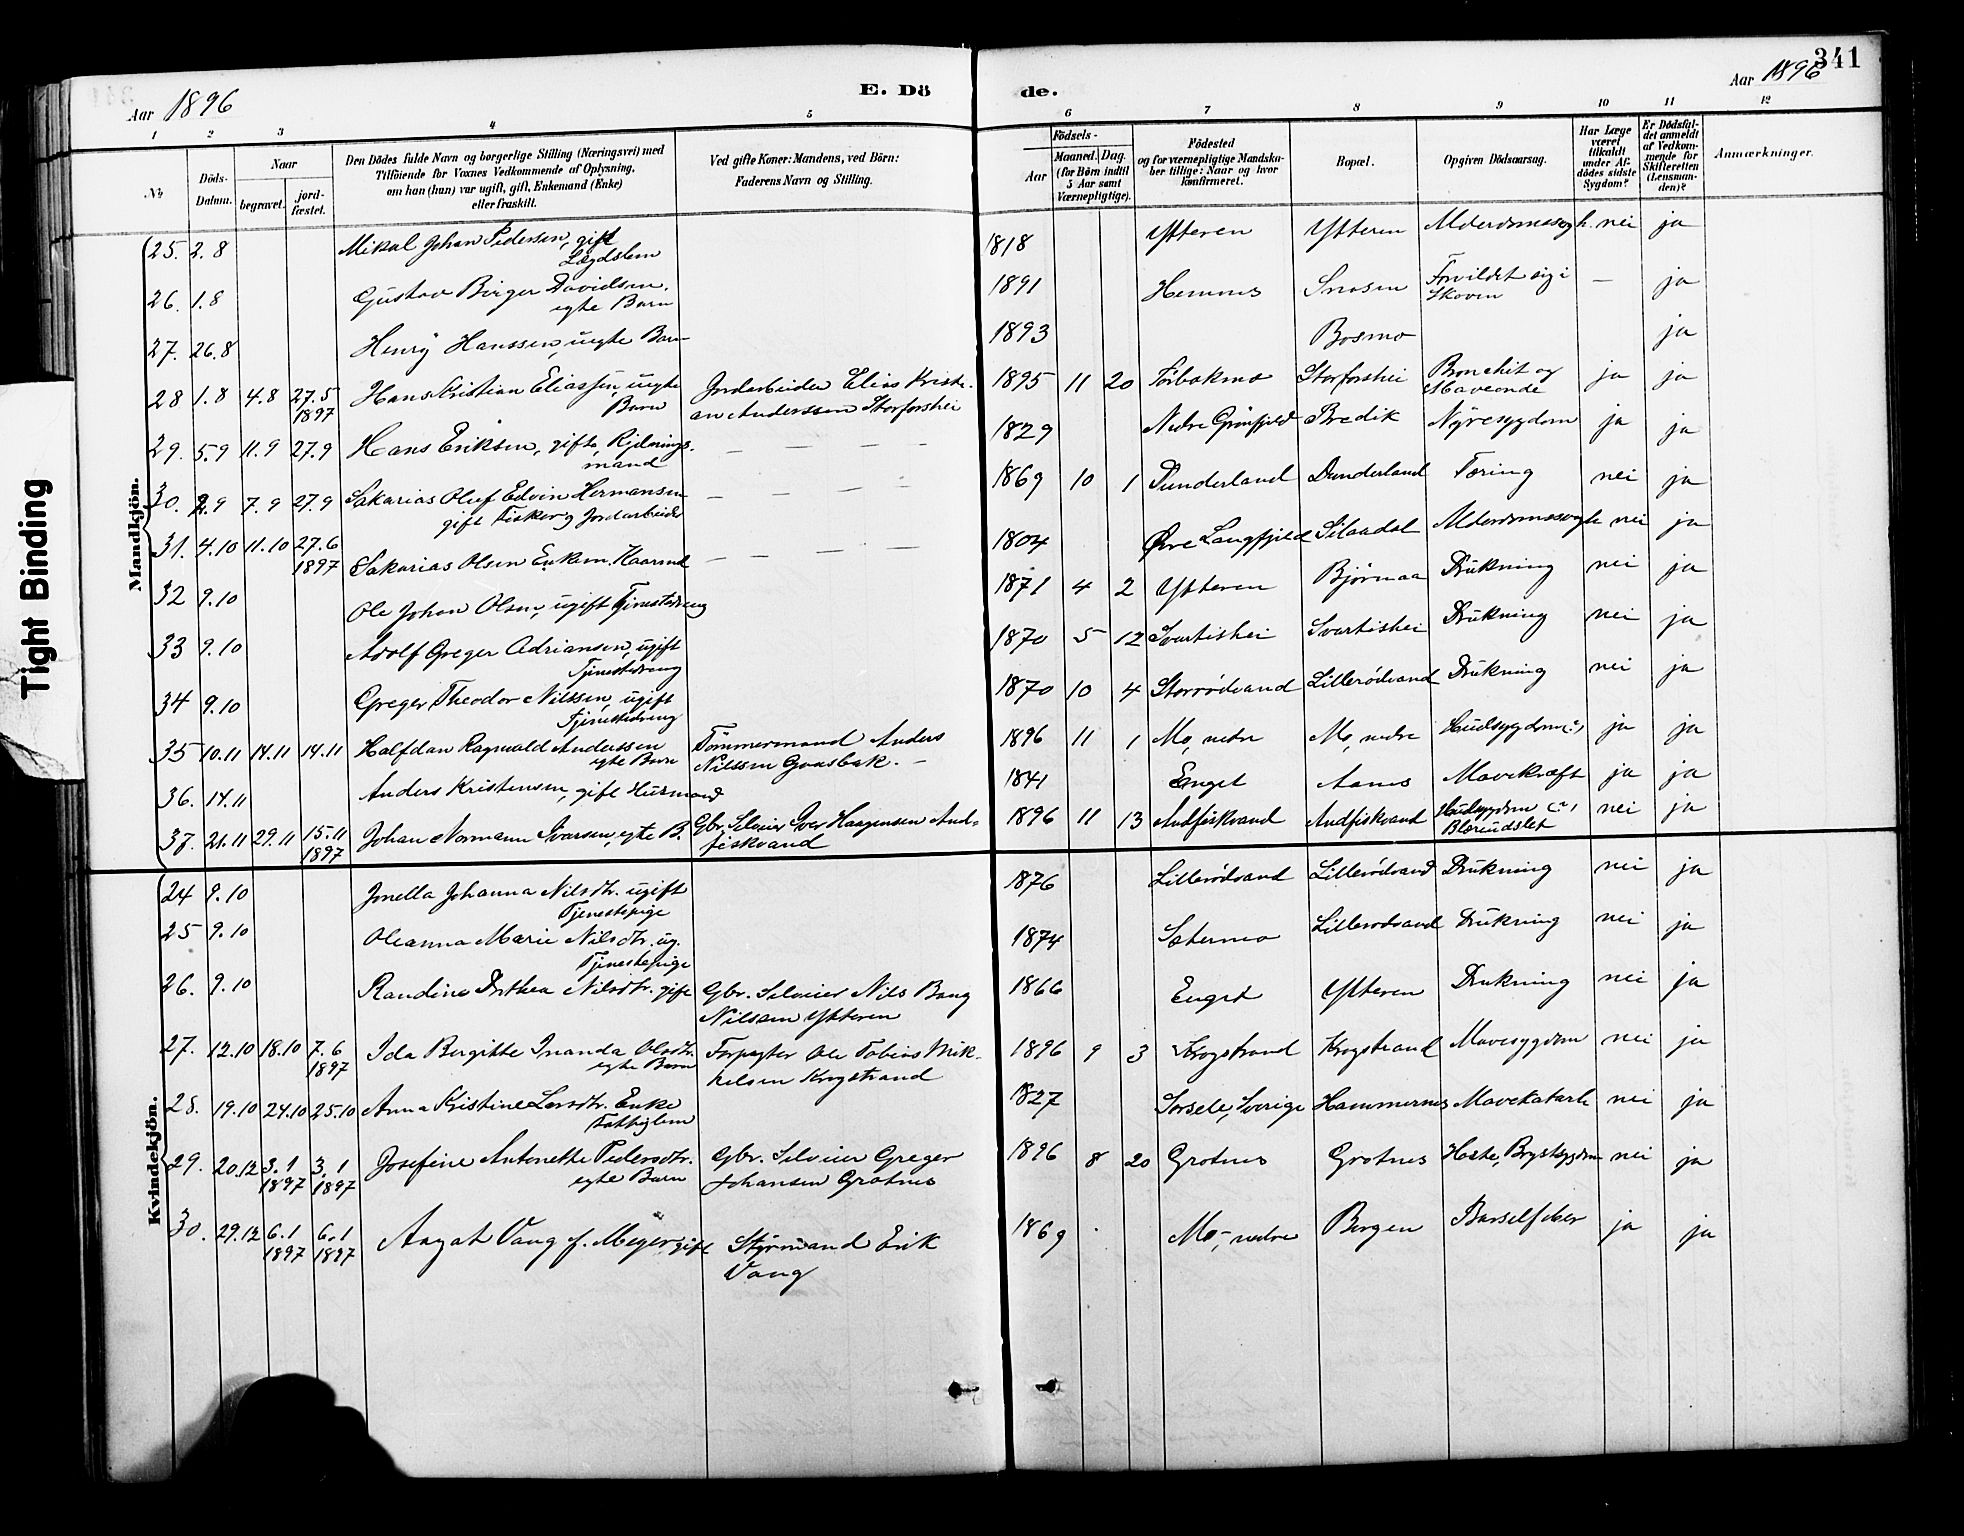 Tight Binding
Aar 1896
E. Dö
de.
Aar 1896
341
1 2 3 4 5 6 7 8 9 10 11 12
№
Döds-
Datum.
Naar
begravet.
jord-
fæstet.
Den Dödes fulde Navn og borgerlige Stilling (Næringsvei) med
Tilföiende for Voxnes Vedkommende af Oplysning,
om han (hun) var ugift, gift, Enkemand (Enke)
eller fraskilt.
Ved gifte Koner: Mandens, ved Börn:
Faderens Navn og Stilling.
Födsels-
Aar
Maaned. Dag.
(for Börn indtil
5 Aar samt
Værnepligtige).
Födested
og for værnepligtige Mandska-
ber tillige: Naar og hvor
konfirmeret.
Bopæl.
Opgiven Dödsaarsag.
Har Læge
været
tilkaldt
under Af-
dödes sidste
Sygdom?
Er Dödsfal-
det anmeldt
af Vedkom-
mende for
Skifteretten
(Lensman-
den)?
Anmærkninger.
Mandkjön.
25. 2.8 Mikal Johan Pedersen, gift
Lægdslem
1818 Ytteren Ytteren Alderdomssvagh. nei ja
26. 1.8 Gustav Birger Davidsen,
egte Barn
1891 Hemnes Forvildet sig i
Skoven — ja
27. 26.8 Henry Hanssen, uegte Barn
1893 Bosmo ja
28 1.8 4.8 27.5
1897 Hans Kristian Eliassen, uegte
Barn
Jordarbeider Elias Kristi-
an Anderssen Storforshei
1895 11 20 Storforshei Bronchit og
Maveonde ja ja
29. 5.9 11.9 27.9 Hans Eriksen, gift,
mand
— — — —
1829 Nedre Grönfjeld Bredik Nyresygdom ja ja
30. 2.9 7.9 27.9 Sakarias Oluf Edvin Hermansen
gift Fisker og Jordarbeider
— — — —
1869 10 1 Dunderland Dunderland Tæring nei ja
31. 4.10 11.10 27.6
1897 Sakarias Olsen Enkem. Kaarmd
— — — —
1804 Øvre Langfjeld Alderdomssvagh nei ja
32 9.10 Ole Johan Olsen, ugift Tjenestedreng
1871 4 2 Ytteren Bjørnaa Drukning nei ja
33 9.10 Adolf Greger Adriansen, ugift
Tjenestedreng
1870 5 12 Svartishei Svartishei Drukning nei ja
34 9.10 Greger Theodor Nilssen, ugift
Tjenestedreng
1870 10 4 Storrødvand Lillerødvand Drukning nei ja
35 10.11 14.11 14.11 Halfdan Ragnvald Anderssen
egte Barn
Tömmermand Anders
Nilssen Gaasbak. —
1896 11 1 Mo, nedre Mo, nedre Hudsygdom(?) ja ja
36. 14.11 Anders Kristensen, gift Husmand
1841 Enget Aanes Mavekræft ja ja
37. 21.11 29.11 15.11
1897 Johan Normann Ivarsen, egte B.
Gbr. Selveier Iver Haagensen And-
fiskvand
1896 11 13 Andfiskvand Andfiskvand Hudsygdom (?)
Blæreudslet nei ja
Kvindekjön.
24 9.10 Jonella Johanna Nilsdtr. ugift
Tjenestepige
1876 Lillerødvand Lillerødvand Drukning nei ja
25 9.10 Oleanna Marie Nilsdtr. ug.
Tjenestepige
1874 Sætermo Lillerødvand Drukning nei ja
26. 9.10 Randine Dorthea Nilsdtr. gift
Gbr. Selveier Nils Bang
Nilssen Ytteren
1866 Enget Ytteren Drukning nei ja
27. 12.10 18.10 7.6
1897 Ida Bergitte Inanda Olsdtr.
egte Barn
Forpagter Ole Tobias Mik-
kelsen Krogstrand
1896 9 3 Krogstrand Krogstrand Mavesygdom nei ja
28. 19.10 24.10 25.10 Anna Kristine Larsdtr. Enke
Fattiglem
1827 Sorsele, Sverige Hammernes Mavekatarh nei ja
29. 20.12 3.1
1897 3.1
1897 Josefine Antonette Pedersdtr.
egte Barn
Gbr. Selveier Greger
Johansen Grotnes
1896 8 20 Grotnes Grotnes Hoste, Brystsygdom nei ja
30. 29.12 6.1
1897 6.1
1897 Aagot Vang f. Meyer, gift
Styrmand Erik
Vang
1869 Mo, nedre Bergen Barselfeber ja ja